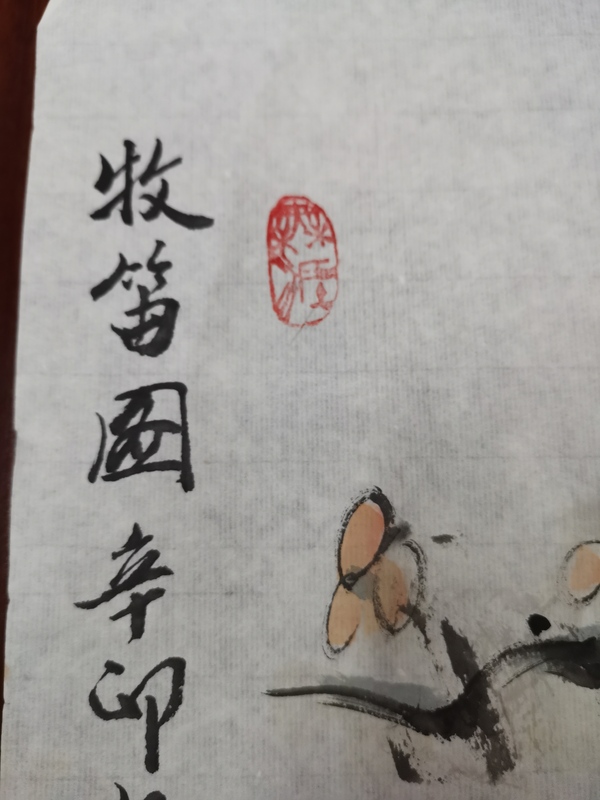 牧笛圖辛卯